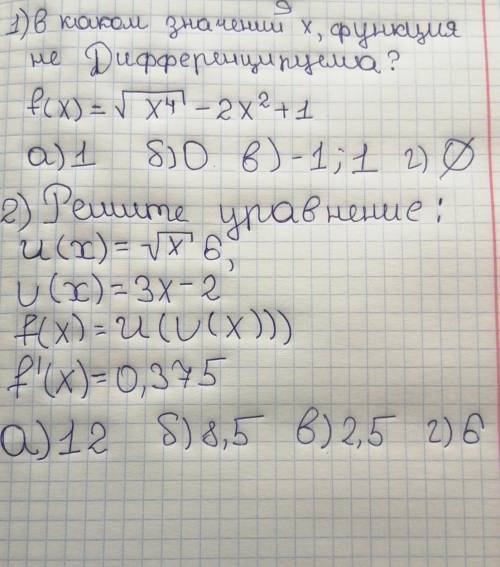 1) в каком значений х, функция
не Дифференципуема?
f(x) = √x⁴ - 2x² + 1
а) 1 б) 0 в) -1; 1 г) ∅
2) Решите уравнение:
u(x) = √x 6,
υ(x) = 3x - 2
f(x) = u(υ(x)))
f'(x) = 0,375
а) 12 б) 8,5 в) 2,5 г) 6